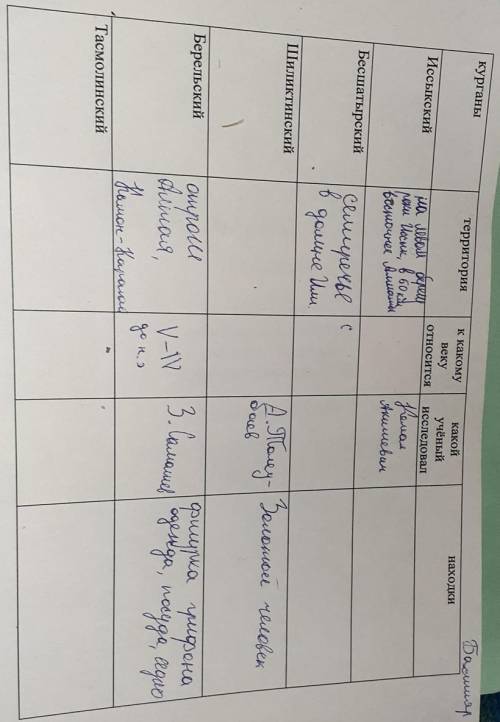 Башияр
курганы
территория
к какому
веку
относится
какой
учёный
исследовал
находки
Иссыкский
на левом берегу
реки Иссык, в 60 км
восточнее Алматы
Кемал
Акишевич
Бесшатырский
Семиречье
в долине Или.
с
Шиликтинский
А. Толеу-
баев
Золотой человек
Берельский
отроги
Алтая,
Катон-Карагай
V-IV
до н.э
З. Самашев
фигурка грифона
одежда, посуда, седло
Тасмолинский